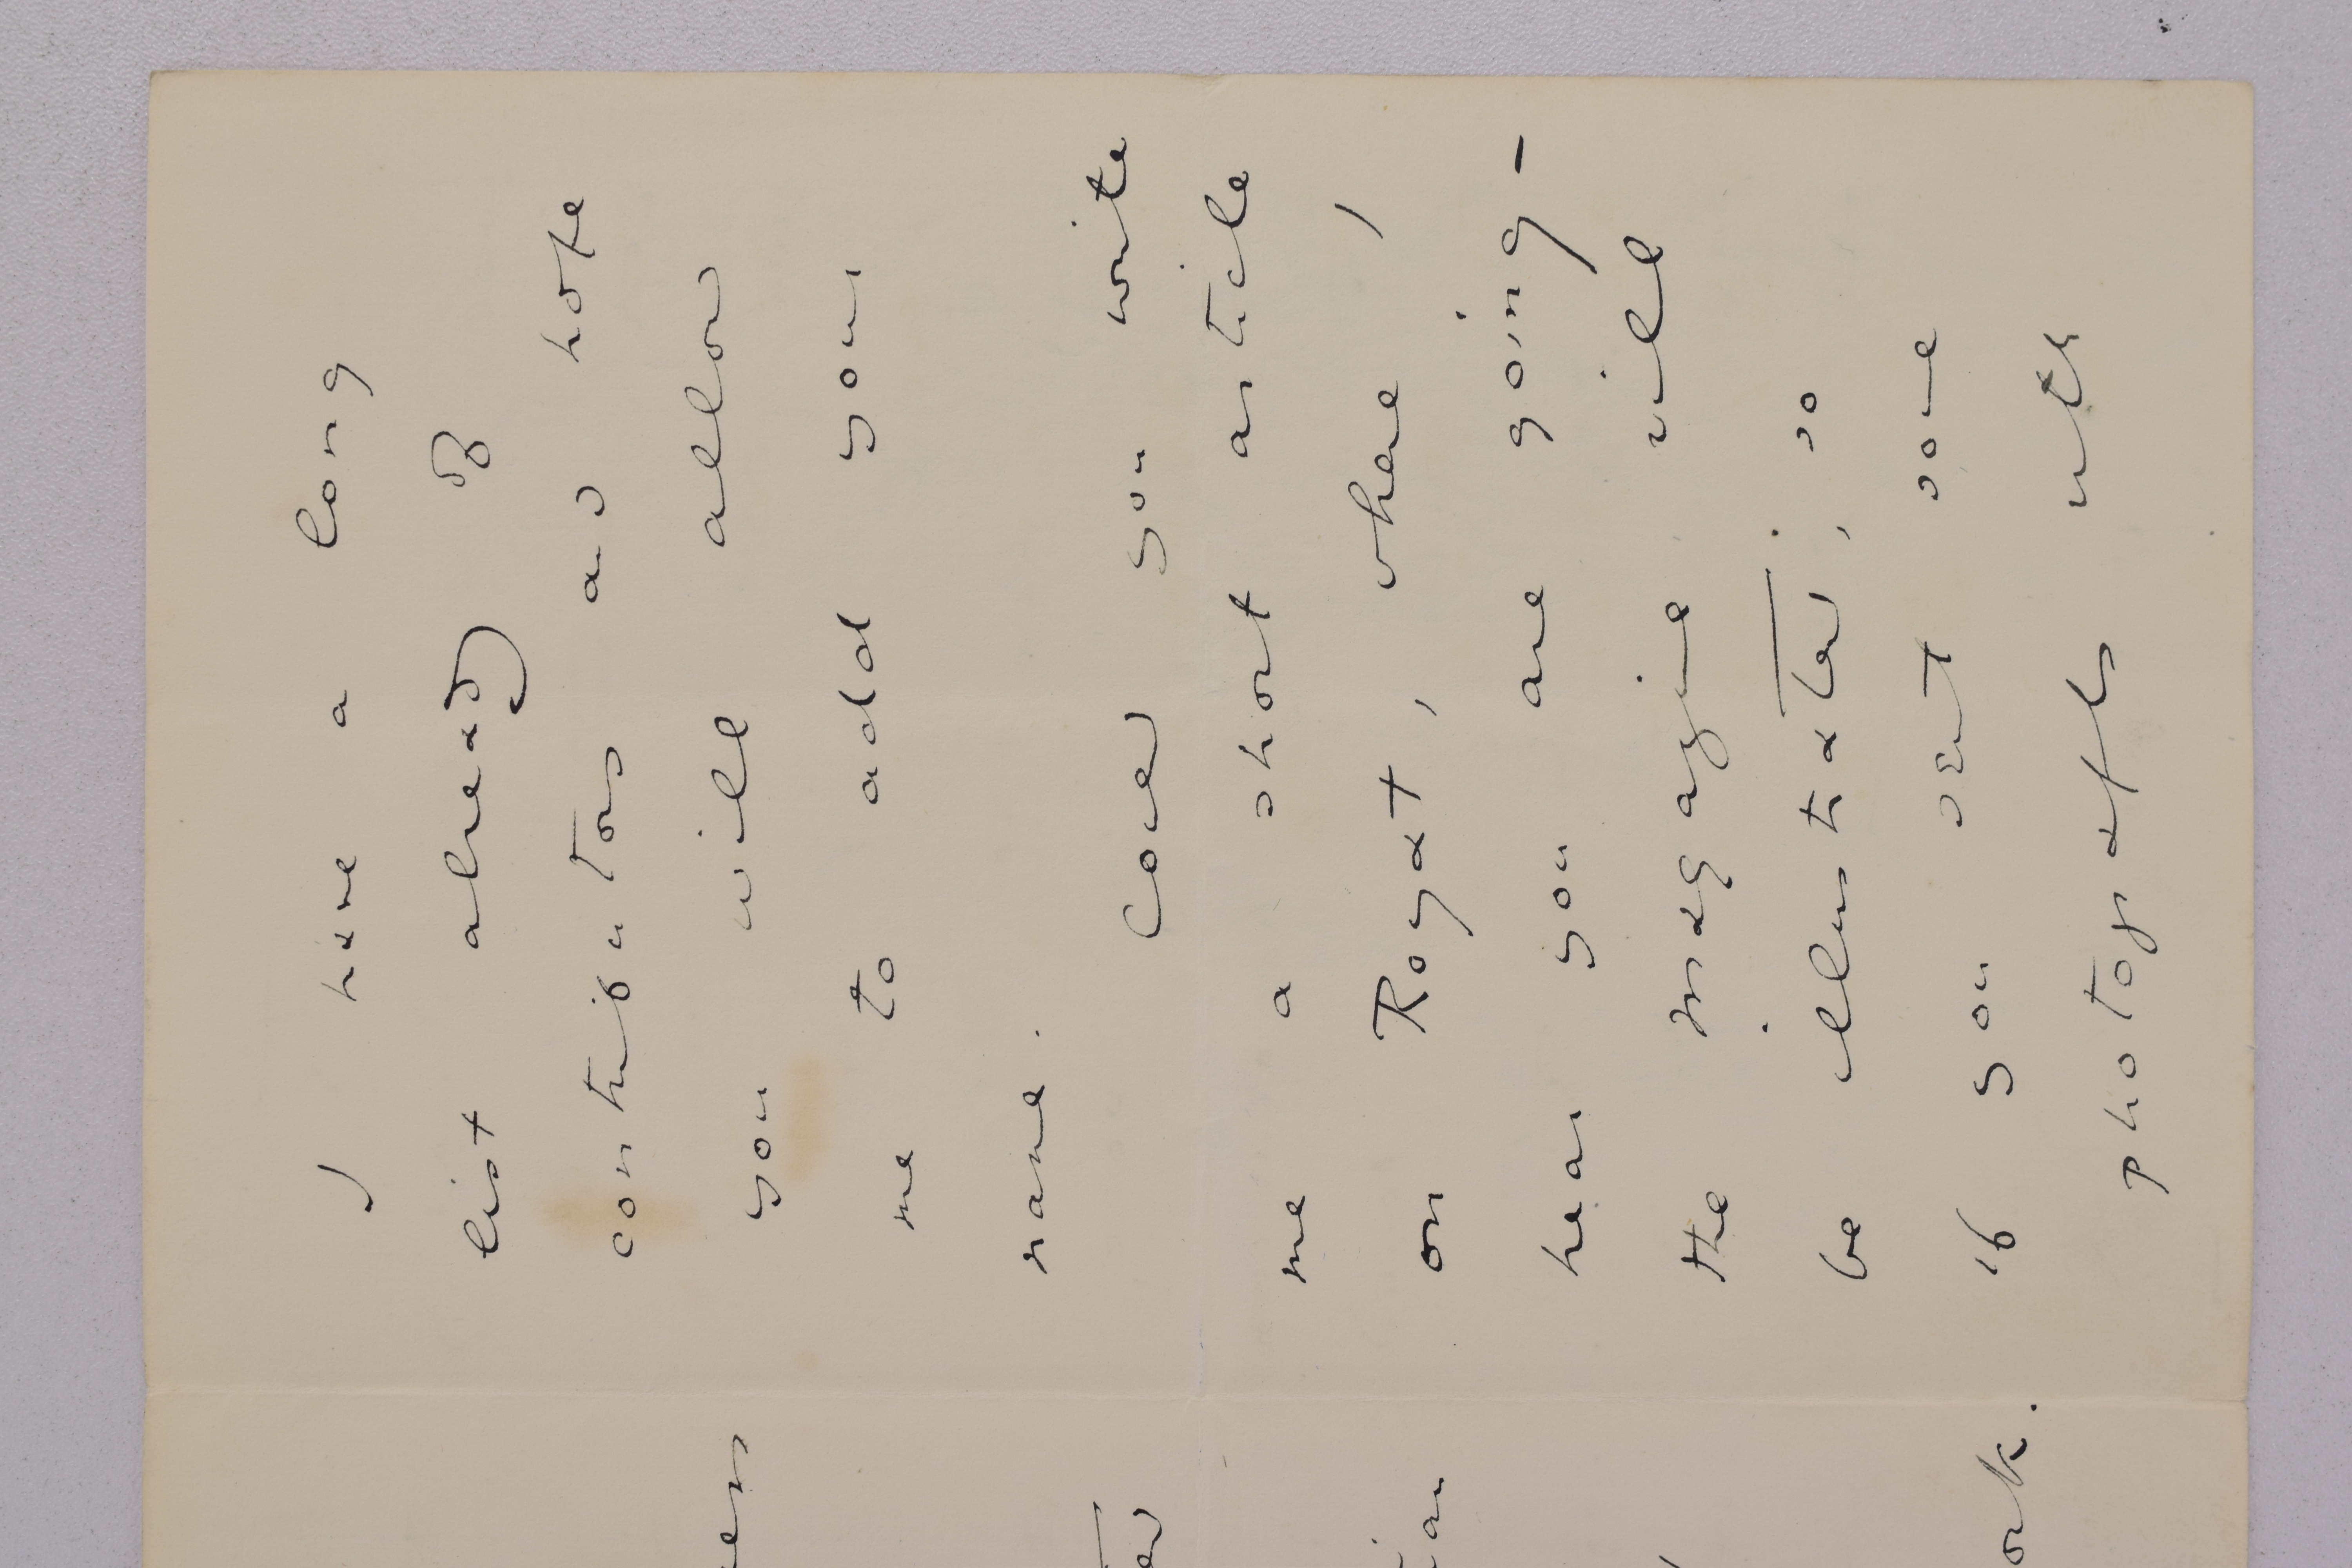 I have a long
list already of
contributors and hope
you will allow
me to add your
name.
Could you write
me a short article
on Royat, where I
hear you are going –
the magazine will
be illustrated, so
if you sent some
photografs with